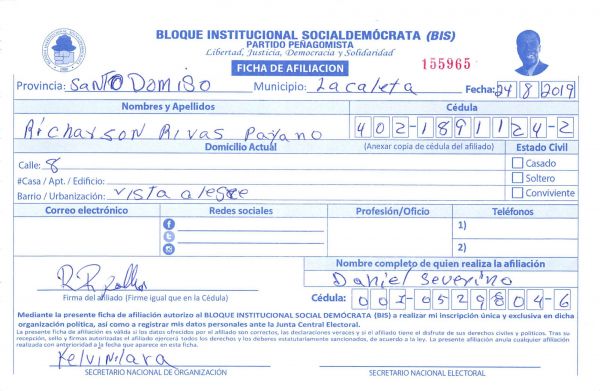 BLOQUE INSTITUCIONAL SOCIALDEMÓCRATA (BIS)
PARTIDO PEÑAGOMISTA
Libertad, Justicia, Democracia y Solidaridad
FICHA DE AFILIACION
155965
Provincia: Santo Domiso Municipio: Lacaleta Fecha: 24 8 2019
Nombres y Apellidos Cédula
Richarson Rivas Payano 402-1891124-2
Domicilio Actual (Anexar copia de cédula del afiliado) Estado Civil
Calle: 8 Casado
#Casa / Apt. / Edificio: Soltero
Barrio / Urbanización: Vista alegre Conviviente
Correo electrónico Redes sociales Profesión/Oficio Teléfonos
1)
2)
Nombre completo de quien realiza la afiliación
Daniel Severino
Firma del afiliado (Firme igual que en la Cédula) Cédula: 001-0529804-6
Mediante la presente ficha de afiliación autorizo al BLOQUE INSTITUCIONAL SOCIAL DEMÓCRATA (BIS) a realizar mi inscripción única y exclusiva en dicha
organización política, así como a registrar mis datos personales ante la Junta Central Electoral.
La presente ficha de afiliación es válida si los datos ofrecidos por el afiliado son correctos, las declaraciones veraces y si el afiliado tiene el disfrute de sus derechos civiles y políticos. Tras su
recepción, sello y firmas autorizadas el afiliado ejercerá todos los derechos y los deberes estatutariamente sancionados, de acuerdo a la ley. La presente afiliación anula cualquier afiliación
realizada con anterioridad a la fecha que aparece en esta ficha.
Kelvin Lara
SECRETARIO NACIONAL DE ORGANIZACIÓN SECRETARIO NACIONAL ELECTORAL